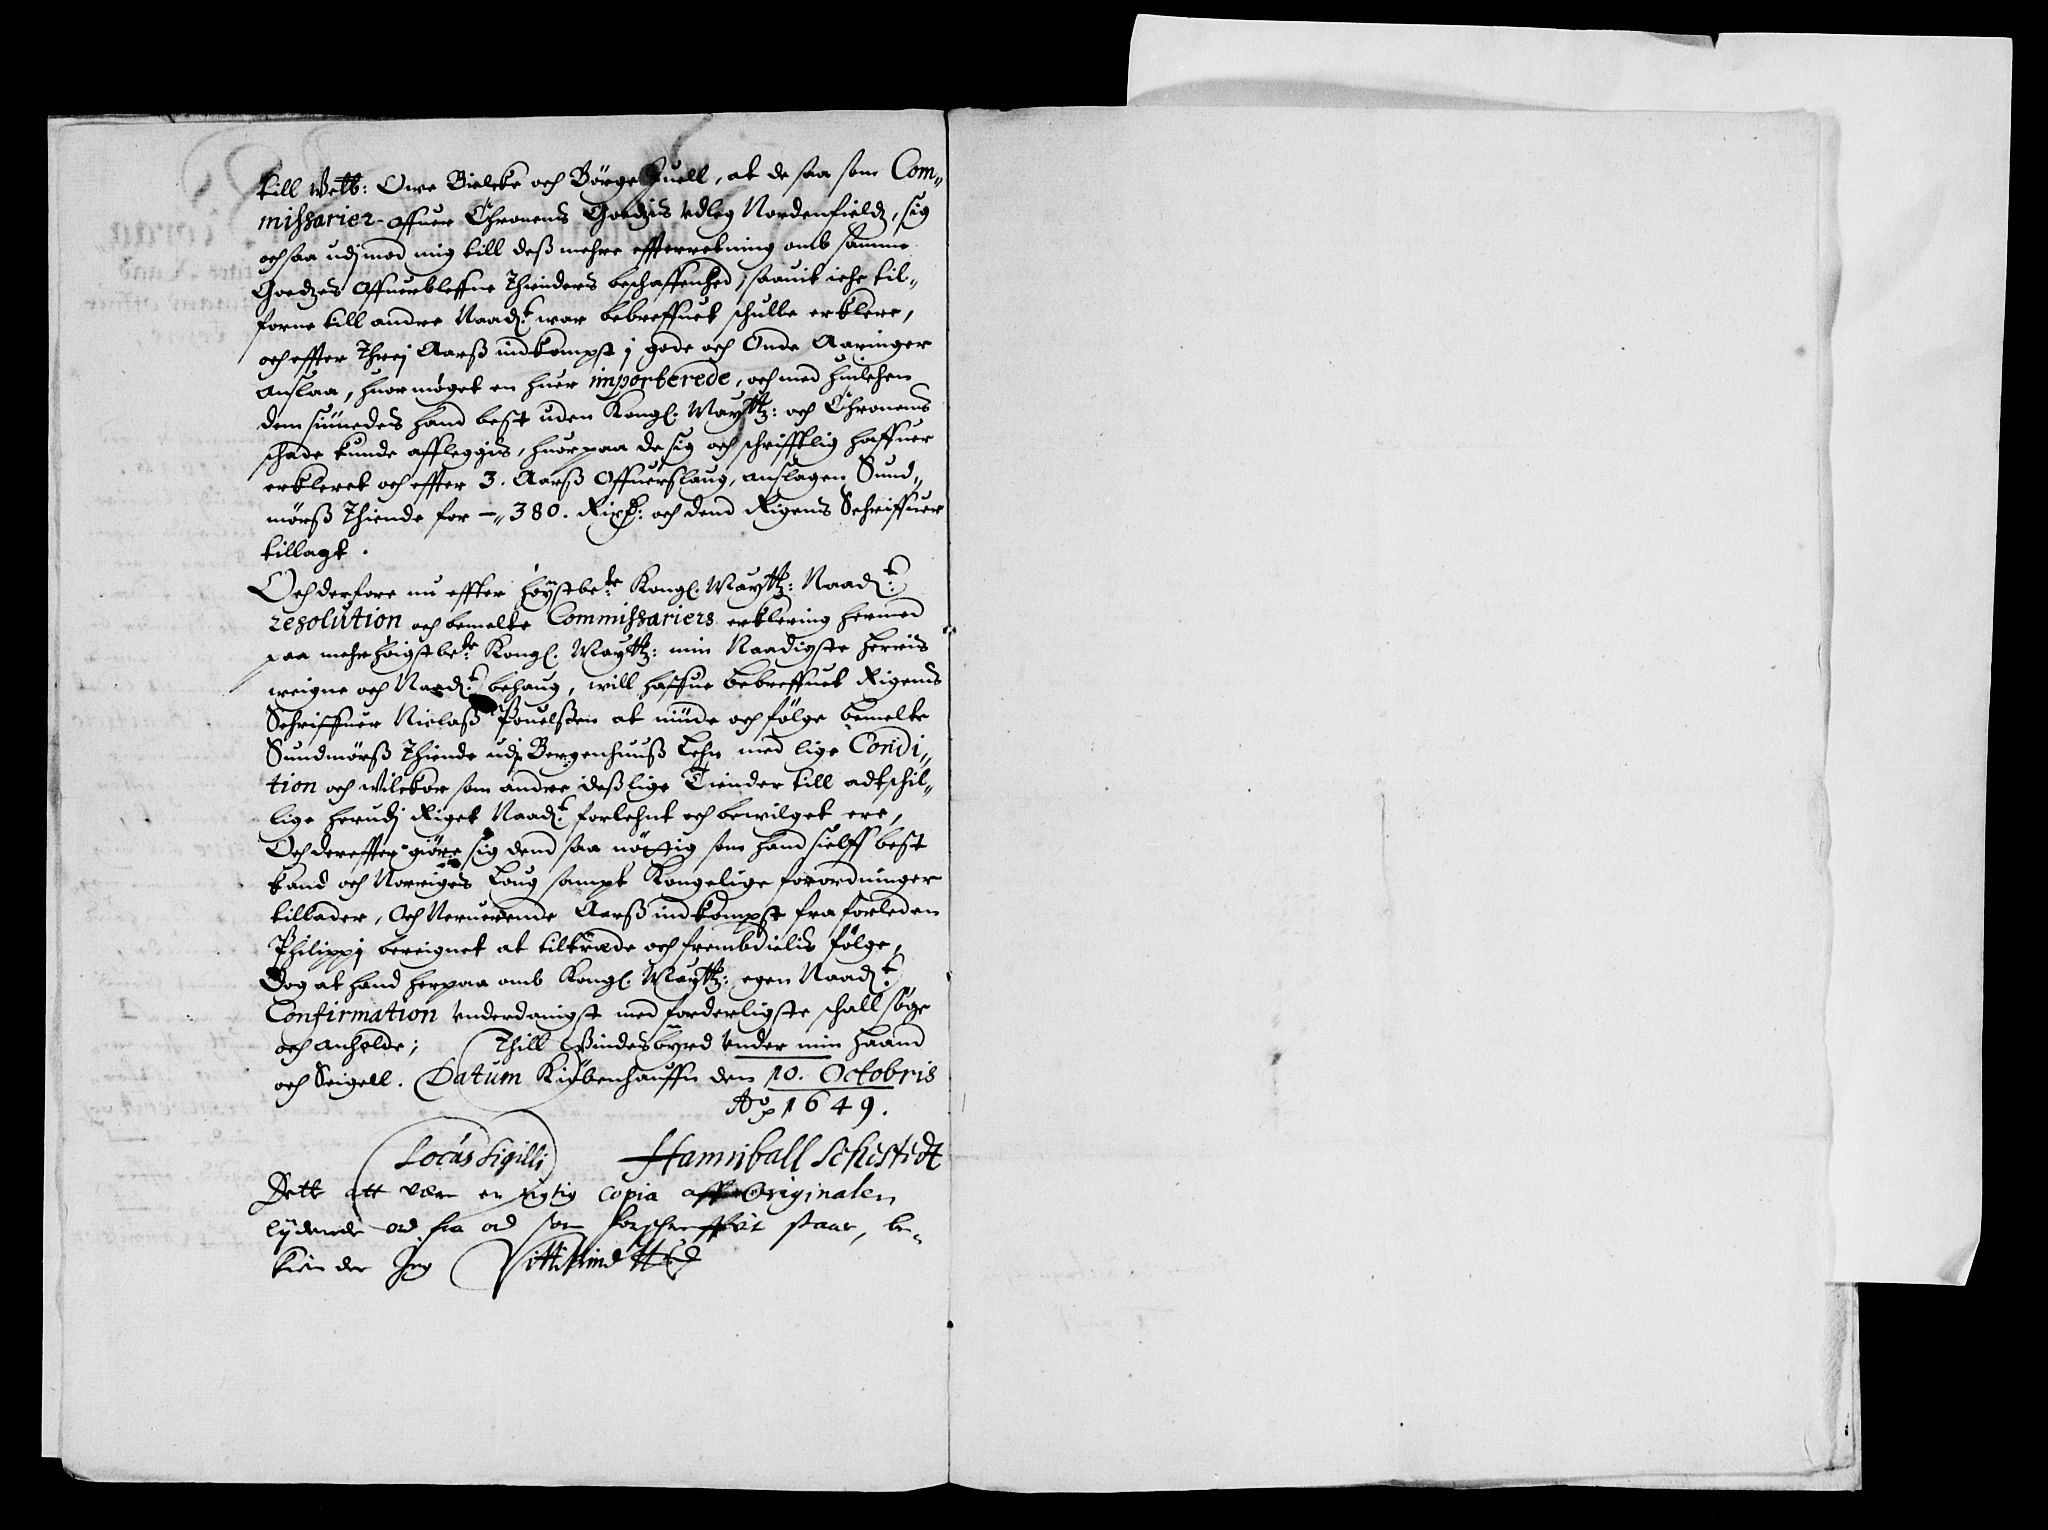 till Welb: Owe Bielcke och Börge Juell, at de saa som Com„
missarier offuer Chronens Goedzis Vdleg Nordenfieldz, sig
ochsaa udj mod mig till deß mehre effterretning omb samme
Goedzes Offuerbleffne Thienders beschaffenhed, saauit iche til„
forne till andre Naadt. war bebreffuet schulle erklere,
och effter Threj Aarß indkompst j gode och Onde Aaringer
Anslaa, huor møget en huer importerede, och med huilchen
dem sünnedes hand best uden Kongl. Maytz: och Chronens
schade kunde affleggis, huorpaa de sig och schrifftlig haffuer
erkleret och effter 3. Aarß Offuerslaug, anslagen Sund„
mörß Thiende for –„ 380. Rixd: och dend Rigens Schriffuer
tillagt.
Och derfore nu effter høystbe:te Kongl. Maytz: Naadt:
resolution och bemelte Commissariers erklering hermed
paa mehrhöigstbe:te Kongl. Maytz: min Naadigste Herris
weigne och Naadt. behaug, will haffue bebreffuet Rigens
Schriffuer Niclaß Pouelßen at niüde och følge bemelte
Sundmörß Thiende udj Bergenhuuß Lehn med lige Condi„
tion och wilckor som andre deßlige Tiender till adtschil„
lige herudj Riget Naadt. forlehnt och bewilget ere,
Och dereffter giöre sig dend saa nöttig som hand sielff best
kand och Norriges Loug sampt Kongelige forordninger
tillader, Och Neruerende Aarß indkompst fra forleden
Philippj bereignet at tiltræde och frembdielis følge,
Dog at hand herpaa omb Kongl. Maytz: egen Naadt.
Confirmation Vnderdanigst med forderligste schall söge
och anholde; Thill Windesbyrd Vnder min Haand
och Seigell. Datum Kiøbenhauffn den 10. Octobris
Ao 1649.
Locus Sigilli Hanniball Sehestedt
Dette att være en rigtig Copia aff Originalen
lydende ord fra ord som forschreffvit staar, be„
kiender Jeg Vittikind H